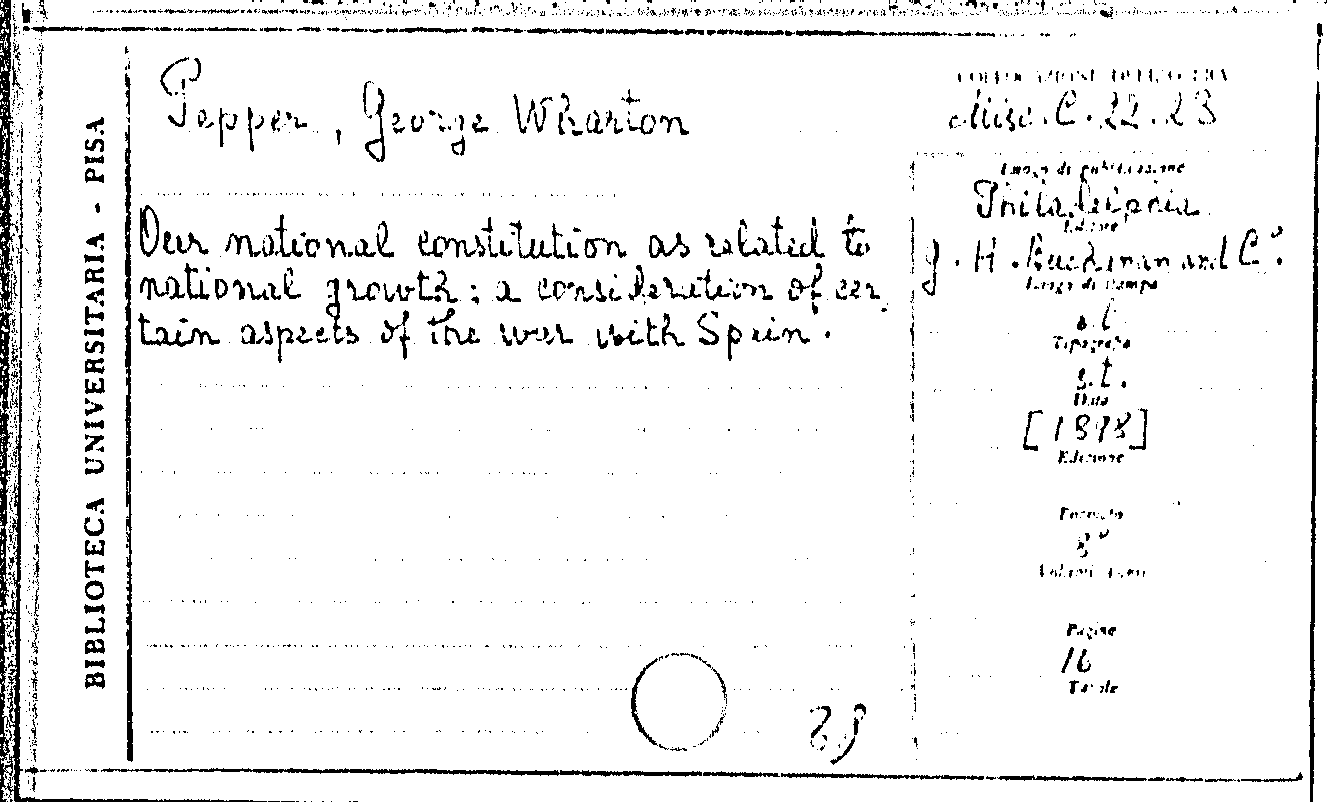 BIBLIOTECA UNIVERSITARIA - PISA
Pepper, George Wharton
Our national constitution as related to
national growth: a consideration of cer
tain aspects of the war with Spain.
COLLOCAZIONE DELL'OPERA
Misc. C. 22. 23
Luogo di pubblicazione
Philadelphia
Editore
J. H. Buchanan and C°.
Luogo di stampa
s. l.
Tipografo
s. t.
Data
[1898]
Edizione
Formato
8°
Volumi
Pagine
16
Tavole